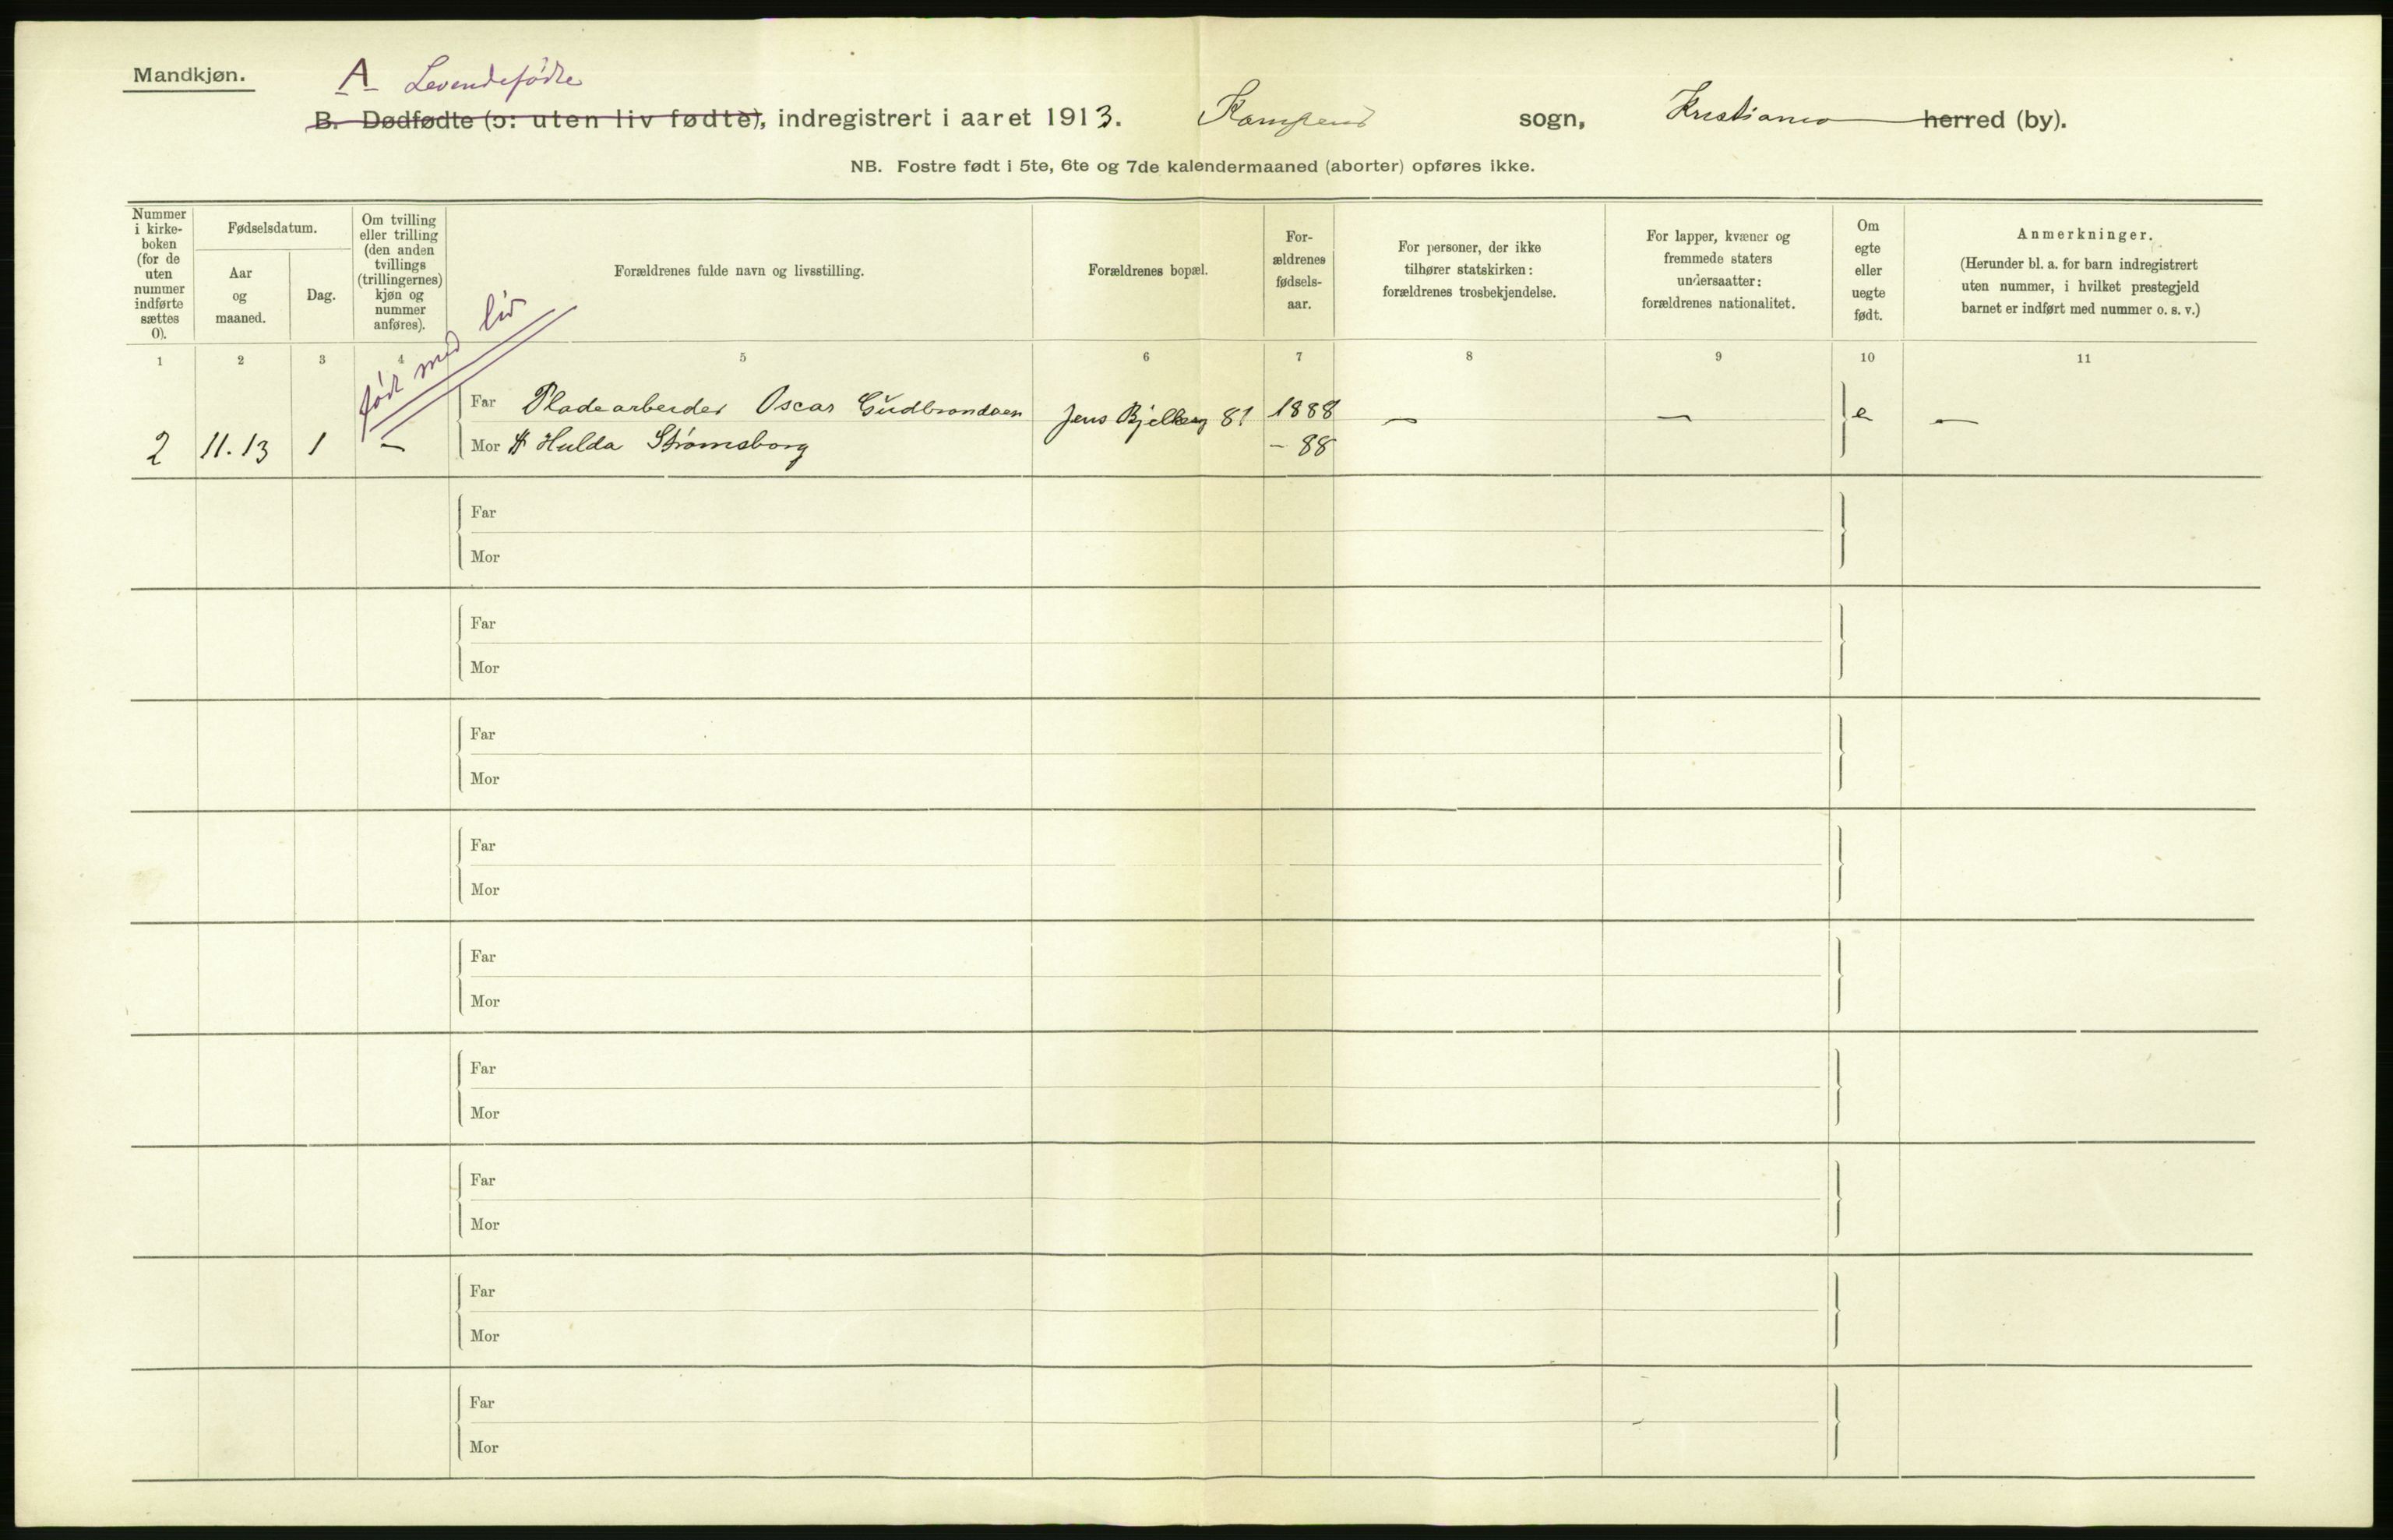 Mandkjøn.
A Levendefødte
B. Dødfødte (ɔ: uten liv fødte), indregistrert i aaret 1913. Kampens sogn, Kristiania herred (by).
NB. Fostre født i 5te, 6te og 7de kalendermaaned (aborter) opføres ikke.
Nummer
i kirke-
boken
(for de
uten
nummer
indførte
sættes
0).
Fødselsdatum.
Aar
og
maaned.
Dag.
Om tvilling
eller trilling
(den anden
tvillings
(trillingernes)
kjøn og
nummer
anføres).
Forældrenes fulde navn og livsstilling.
Forældrenes bopæl.
For-
ældrenes
fødsels-
aar.
For personer, der ikke
tilhører statskirken:
forældrenes trosbekjendelse.
For lapper, kvæner og
fremmede staters
undersaatter:
forældrenes nationalitet.
Om
egte
eller
uegte
født.
Anmerkninger.
(Herunder bl. a. for barn indregistrert
uten nummer, i hvilket prestegjeld
barnet er indført med nummer o. s. v.)
1 2 3 4 5 6 7 8 9 10 11
født med liv
Far Pladearbeider Oscar Gudbrandsen Jens Bjelkesg 81 1888 — — e —
2 11.13 1 — Mor Hulda Strømsborg - 88
Far
Mor
Far
Mor
Far
Mor
Far
Mor
Far
Mor
Far
Mor
Far
Mor
Far
Mor
Far
Mor